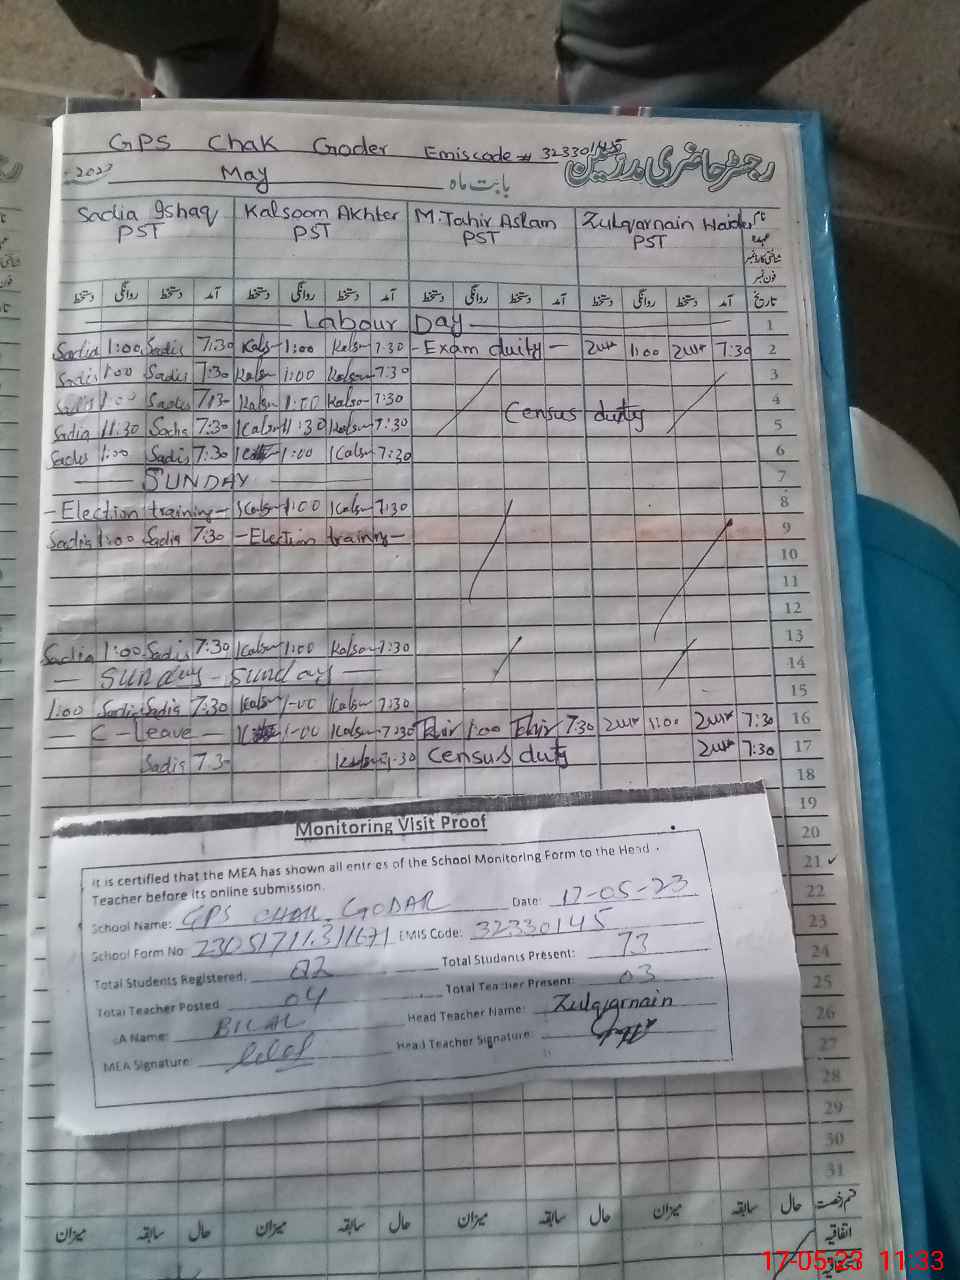 GPS Chak Goder Emiscode # 32330145 رجسٹر حاضری مدرسین
2023 May بابت ماہ
Sadia Ishaq Kalsoom Akhter M.Tahir Aslam Zulqarnain Haider نام
PST PST PST PST عہدہ
شناختی کارڈ نمبر
فون نمبر
دستخط روانگی دستخط آمد دستخط روانگی دستخط آمد دستخط روانگی دستخط آمد دستخط روانگی دستخط آمد تاریخ
Labour Day 1
Sadia 1:00 Sadia 7:30 Kals 1:00 Kals 7:30 - Exam duity - 1:00 7:30 2
Sadia 1:00 Sadia 7:30 Kalsu 1:00 Kalsu 7:30 3
Sadia 1:00 Sadia 7:30 Kalsu 1:00 Kalsu 7:30 Census duty 4
Sadia 11:30 Sadia 7:30 Kalsu 11:30 Kalsu 7:30 5
Sadia 1:00 Sadia 7:30 1:00 Kalsu 7:30 6
SUNDAY 7
- Election training - Kalsu 1:00 Kalsu 7:30 8
Sadia 1:00 Sadia 7:30 - Election training - 9
10
11
12
Sadia 1:00 Sadia 7:30 Kalsu 1:00 Kalsu 7:30 13
— Sunday - Sunday — 14
1:00 Sadia Sadia 7:30 Kalsu 1-00 Kalsu 7:30 15
— C - Leave — 1-00 Kalsu 7:30 Tahir 1:00 Tahir 7:30 1:00 7:30 16
Sadia 7:30 Kalsu 7:30 Census duty 7:30 17
18
19
Monitoring Visit Proof
20
It is certified that the MEA has shown all entries of the School Monitoring Form to the Head
Teacher before its online submission.
21 ✓
School Name: GPS CHAK GODAR Date: 17-05-23
22
School Form No: EMIS Code: 32330145
23
Total Students Registered: Total Students Present: 73
24
Total Teacher Posted: 04 Total Teacher Present: 03
25
A Name: BILAL Head Teacher Name: Zulqarnain
26
MEA Signature: Head Teacher Signature:
27
28
29
30
31
میزان سابقہ حال میزان سابقہ حال میزان سابقہ حال میزان سابقہ حال قسم رخصت
اتفاقیہ
17-05-23 11:33